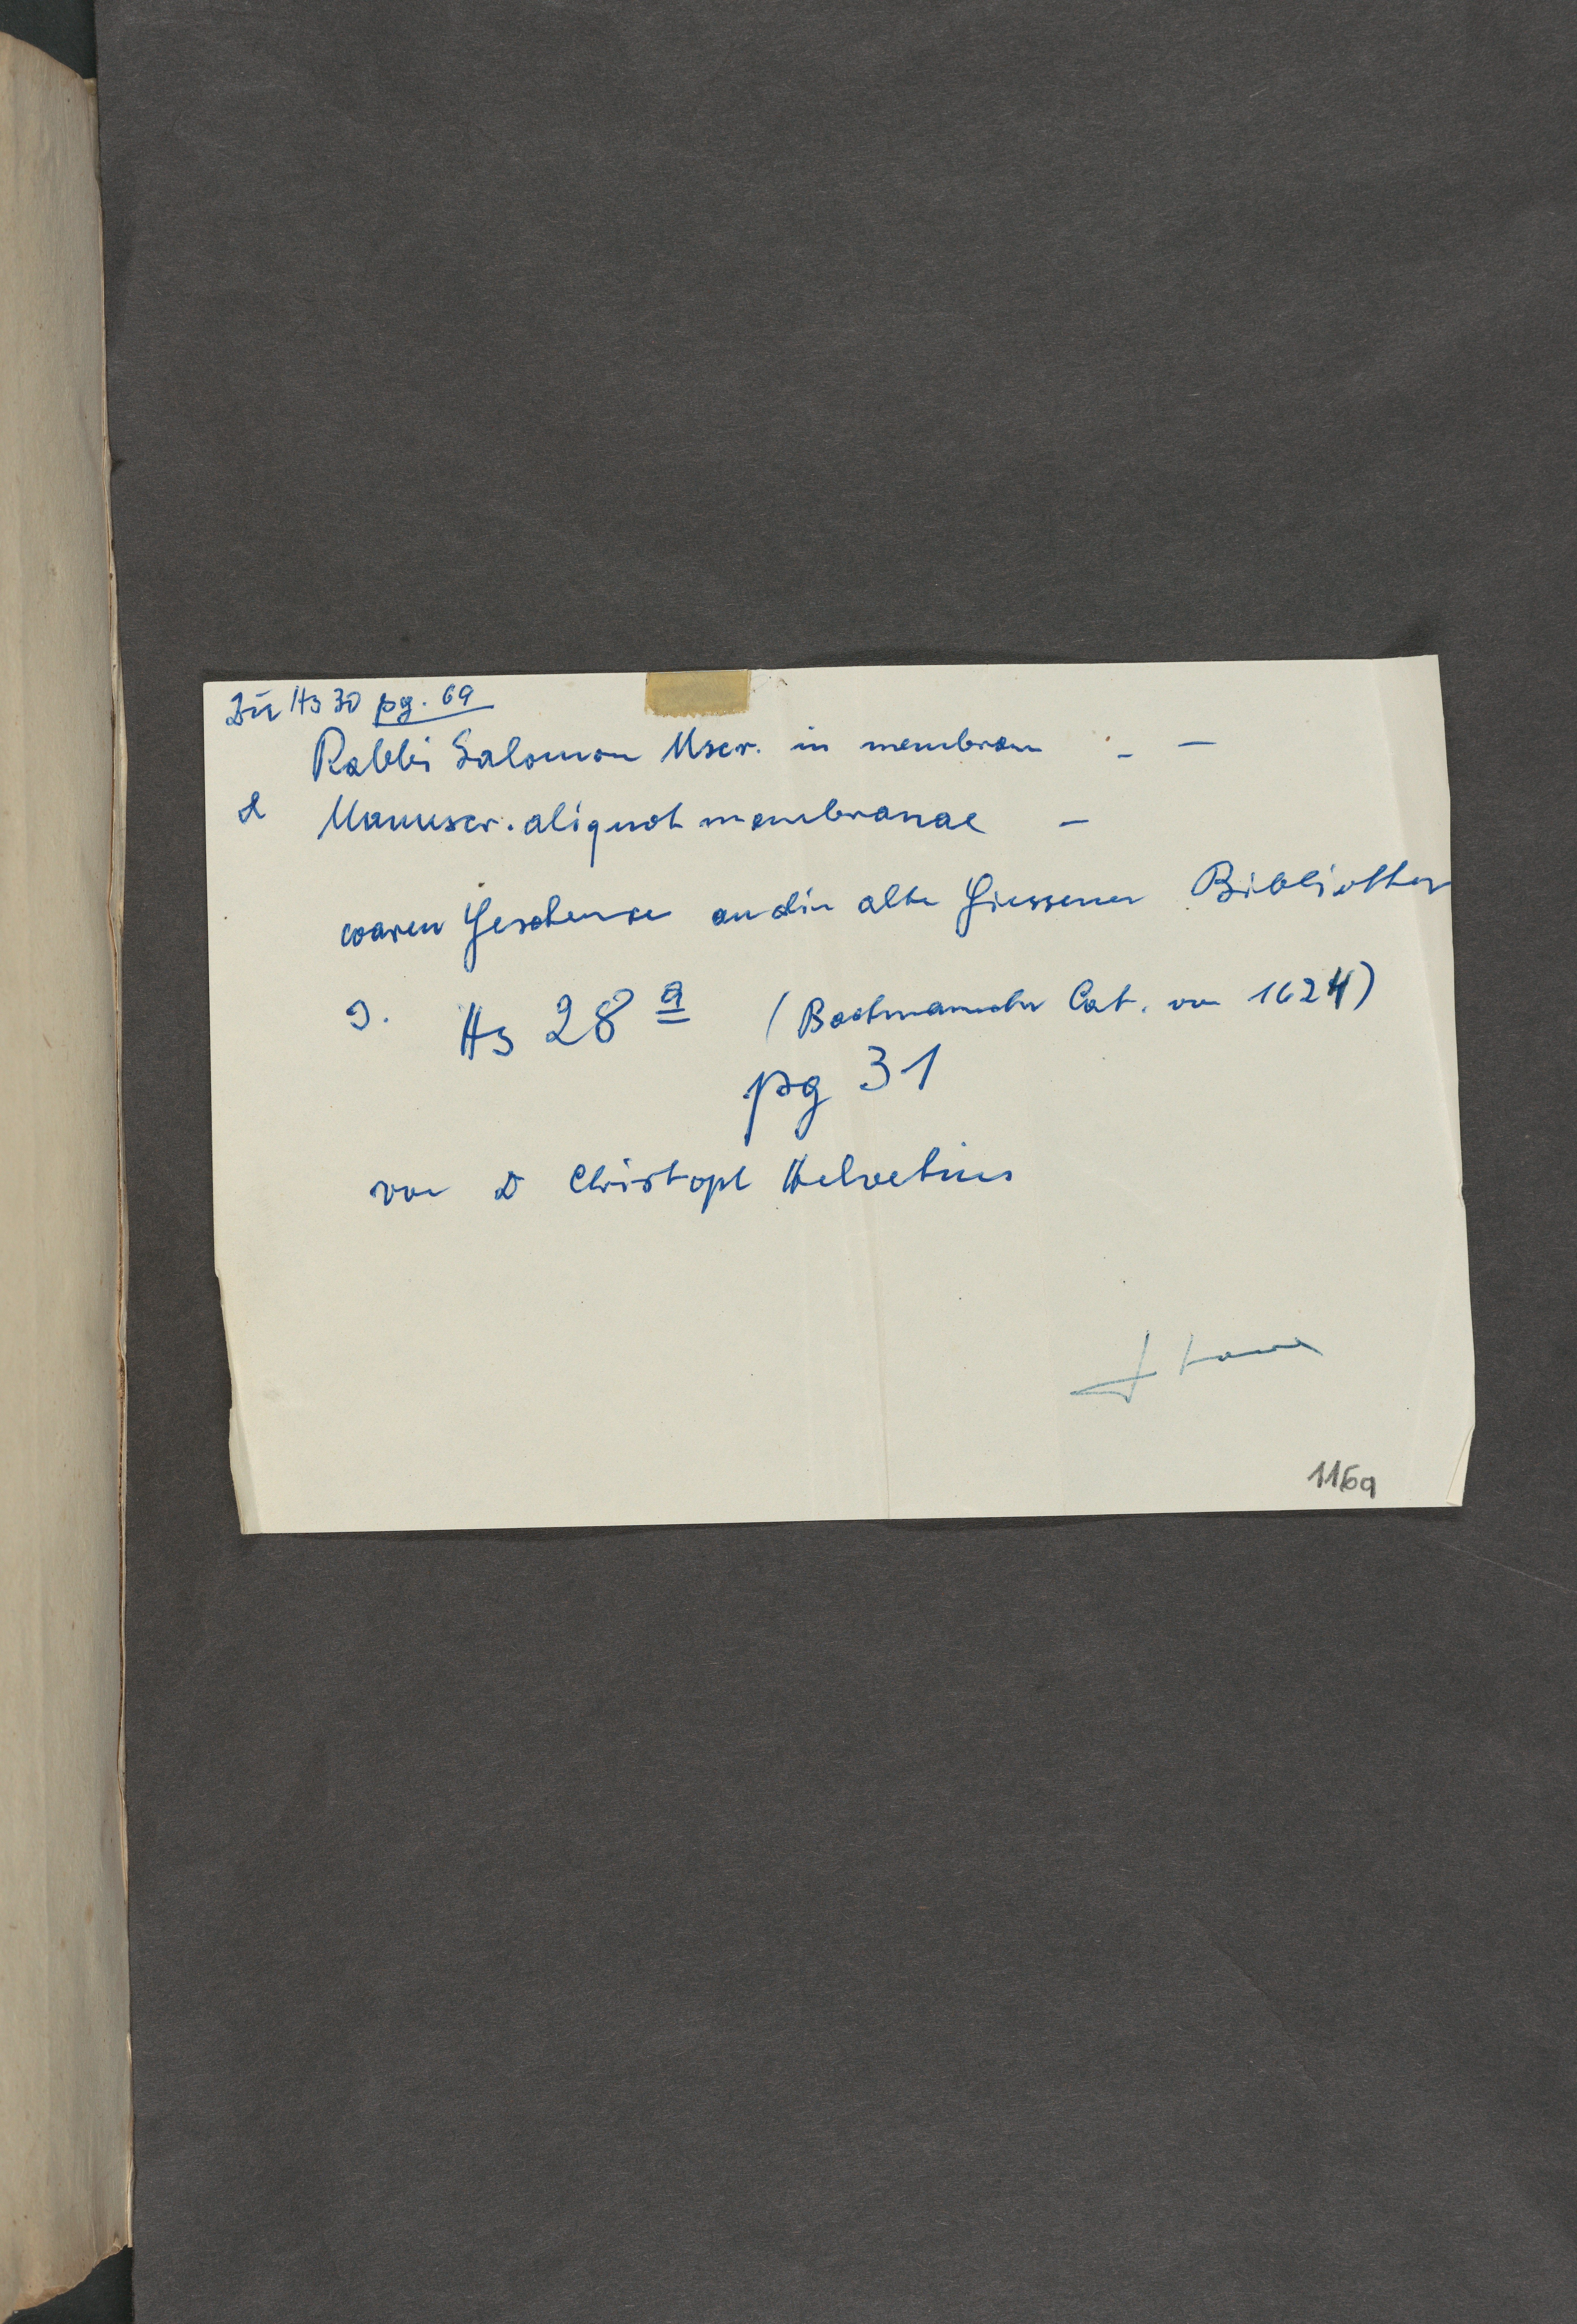 Zu Hs 30 pg. 69
Rabbi Salomon Mscr. in membran – –
& Manuscr. aliquot membranae –
waren Geschenke an die alte Giessener Bibliothek
s. Hs 28 a ( Cat. von 1624)
pg 31
von D Christoph Helvetius
116a